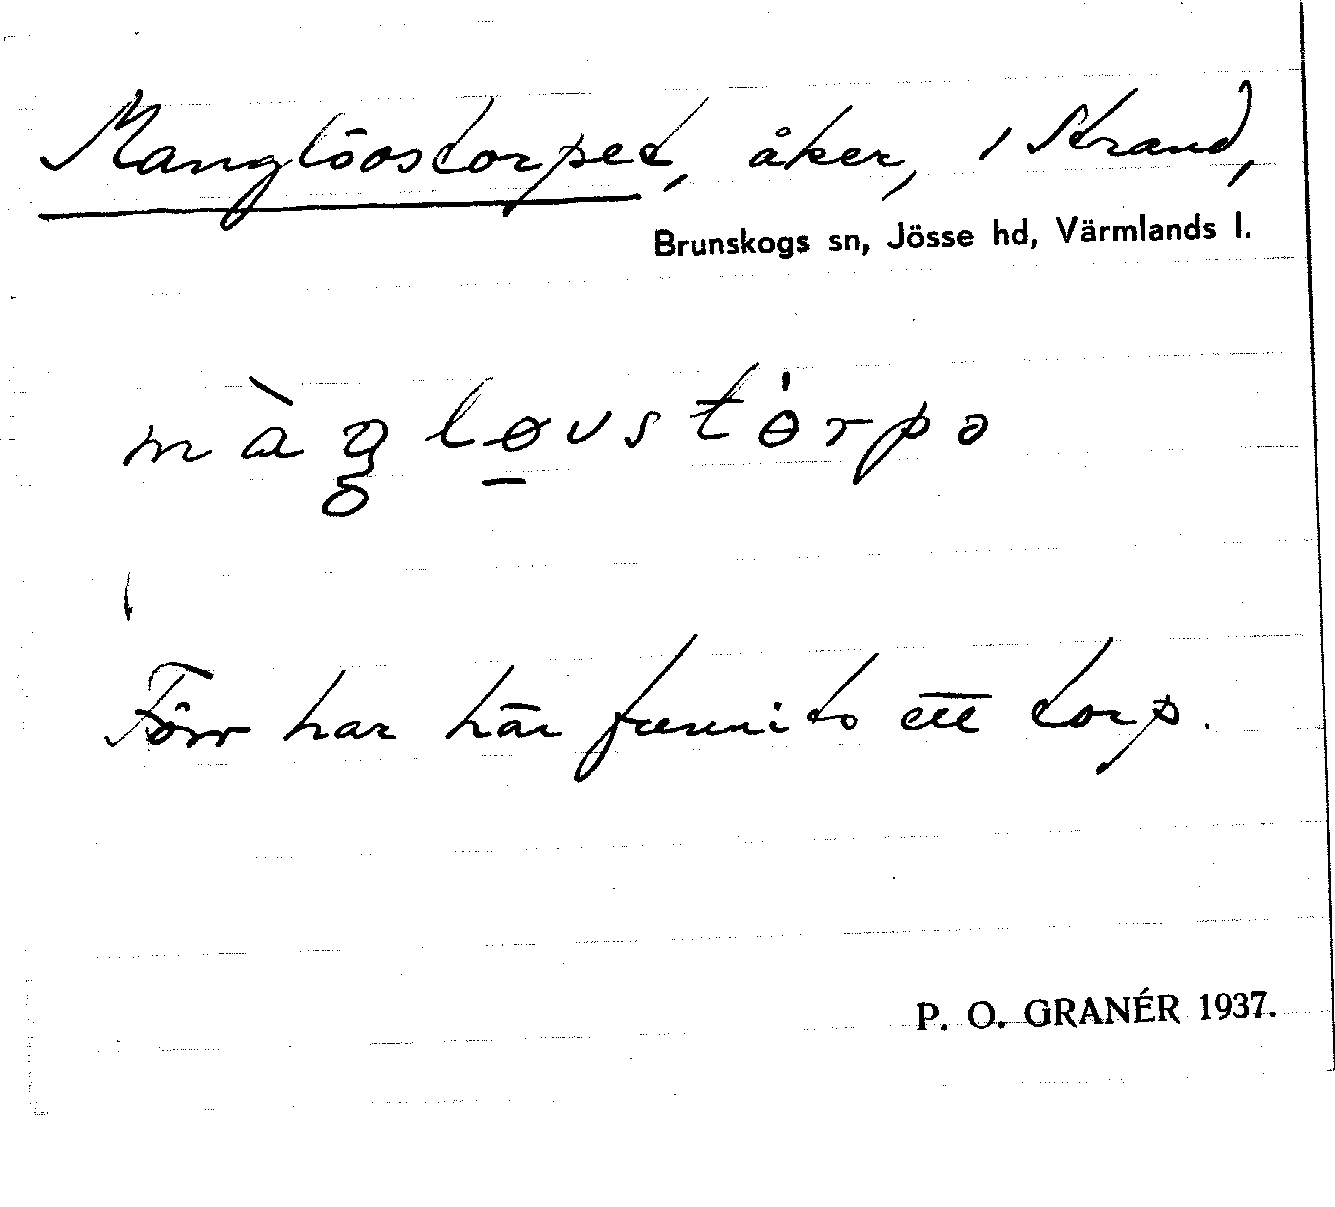 Manglöostorpet, åker, i Strand,
Brunskogs sn, Jösse hd, Värmlands l.
màŋløvstɵ́rpə
Förr har här funnits ett torp.
P. O. GRANÉR 1937.